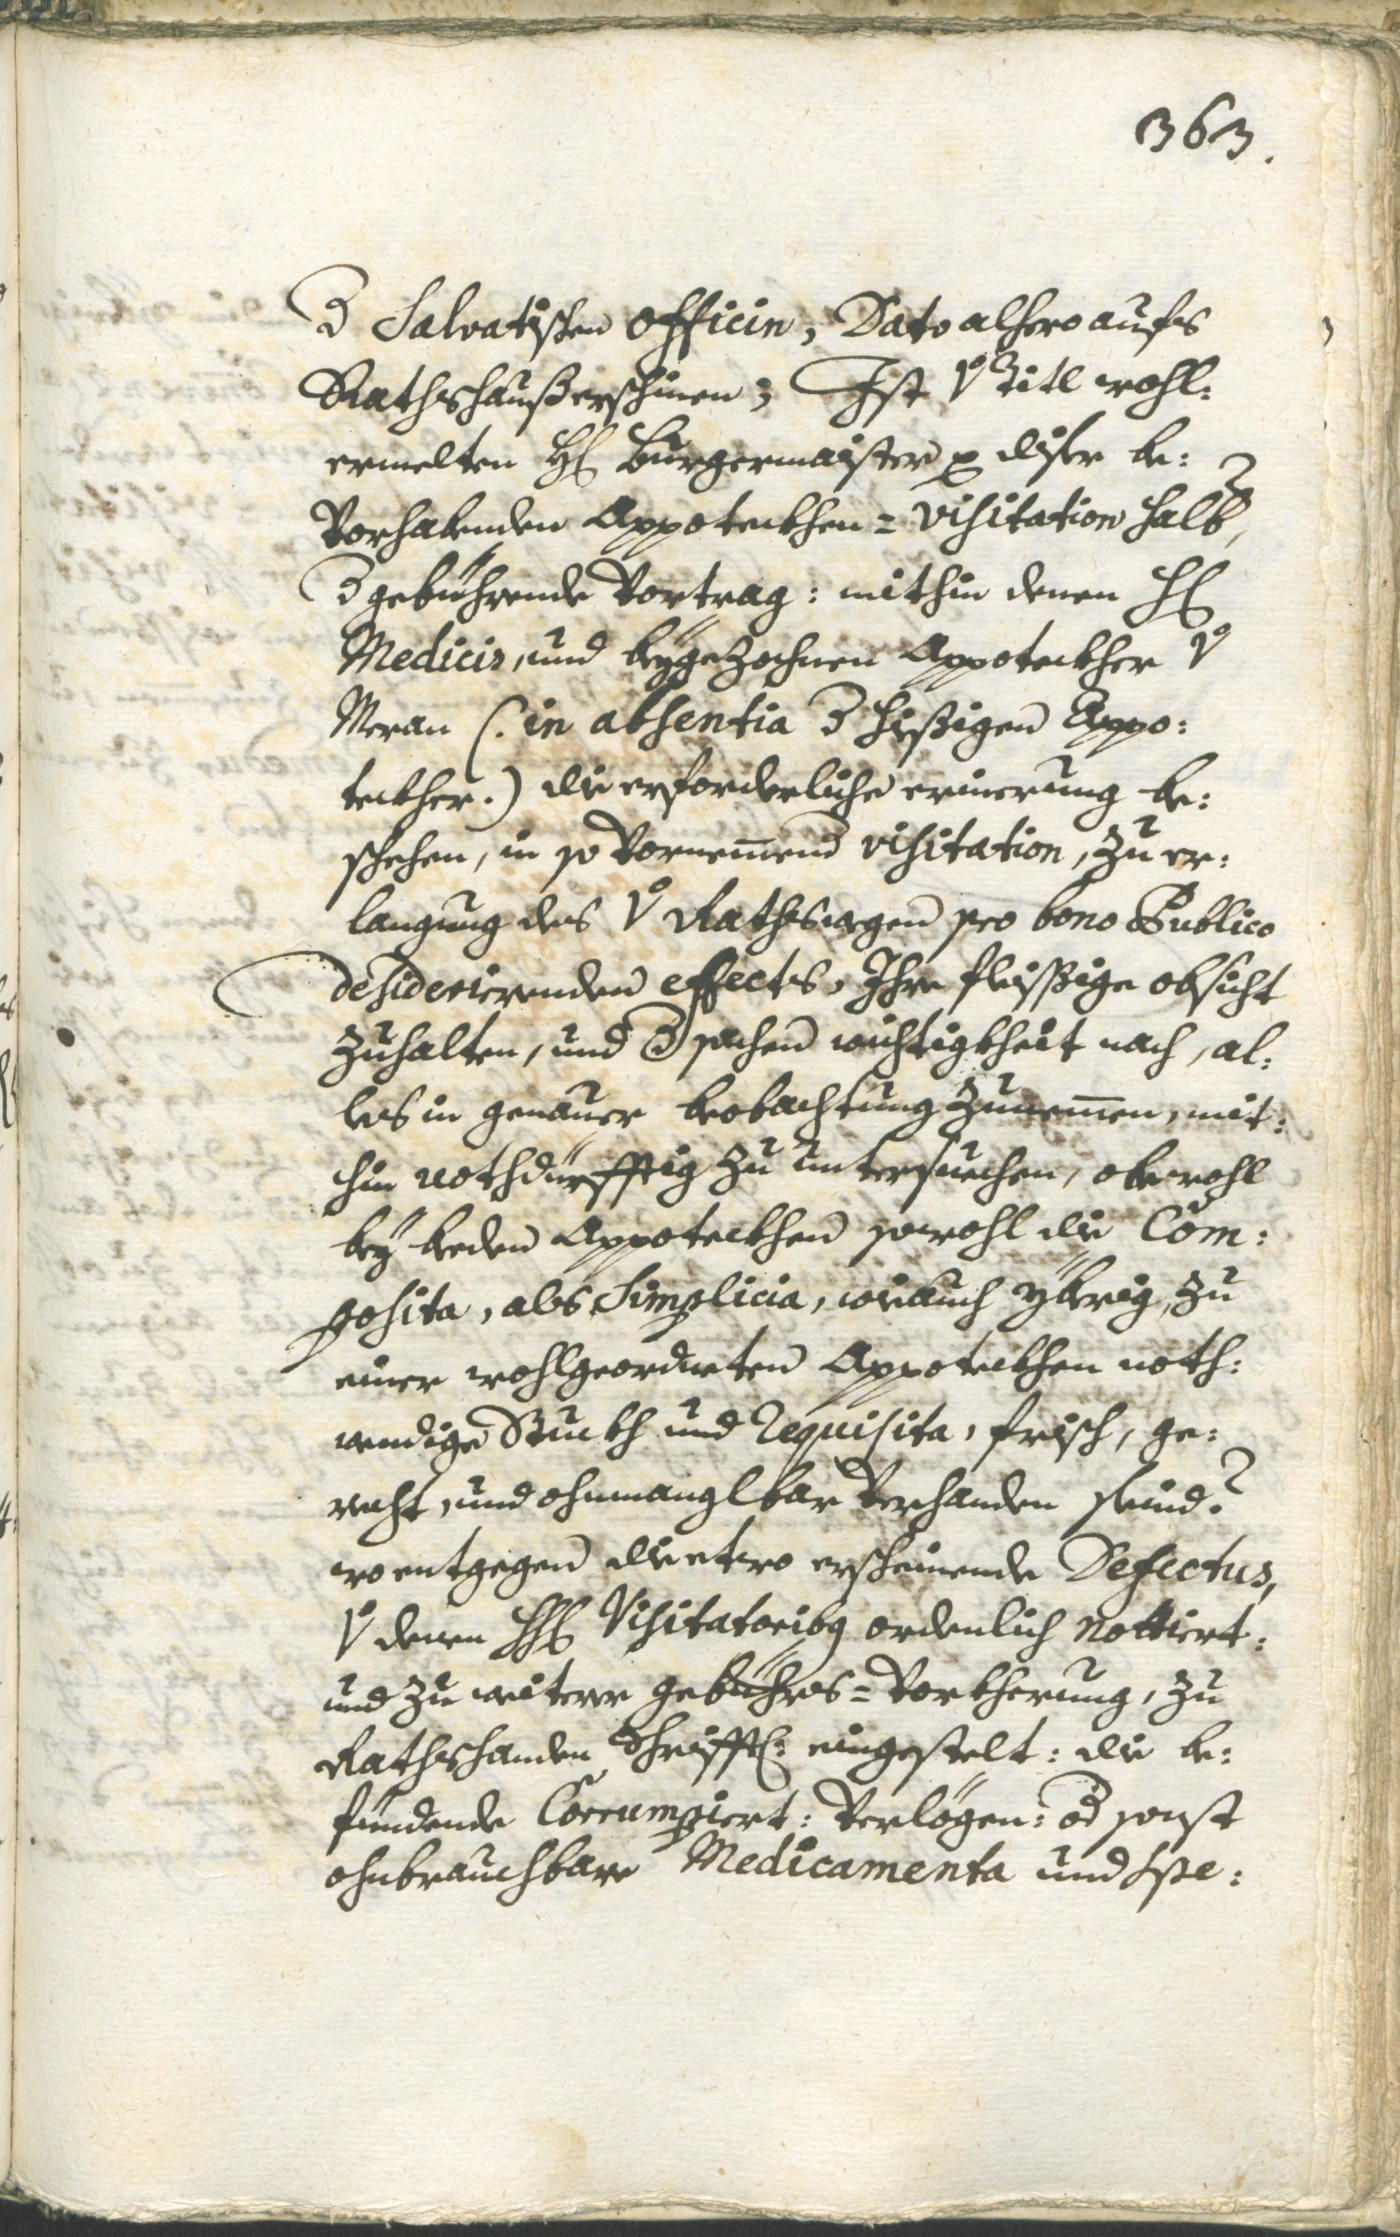 363.
der Salvatischen Officin, Dato alhero aufs
Rathshauß erschinen; Ist von Titl wohl:
ermelten Hl Burgermaister p diser be:
Vorhabenden Appoteckhen=Visitation halb,
der gebührende Vortrag: mithin denen Hl
Medicis, und beÿgezochnen Appoteckher von
Meran (: in absentia der hießigen Appo:
teckher.) die erforderliche erinerung be:
schehen, in so Vornemend visitation, zu er:
langung des von Raths wegen pro bono Publico
desiderierenden effects, Ihre fleissige obsicht
zuhalten, und der sachen wichtigkheit nach, al:
les in genauer beobachtung zunemen, mit:
hin nothdürfftig zu untersuechen, ob wohl
beÿ beden Appoteckhen sowohl die Com:
posita, als Simplicia, wie auch ÿbrig, zu
einer wohlgeordneten Appoteckhen noth:
wendige Stuckh und Requisita, frisch, ge:
recht, und ohnmanglbar Verhanden seind?
wo entgegen die etwo erscheinende Defectus,
von denen Hhl Visitatoribus ordenlich Nottiert:
und zu weiterer gebührs=Vorkherung, zu
Rathshanden Schrifftl: eingestelt: die be:
findende Corrumpiert: Verlögen: od sonst
ohnbrauchbare Medicamenta und Spe: